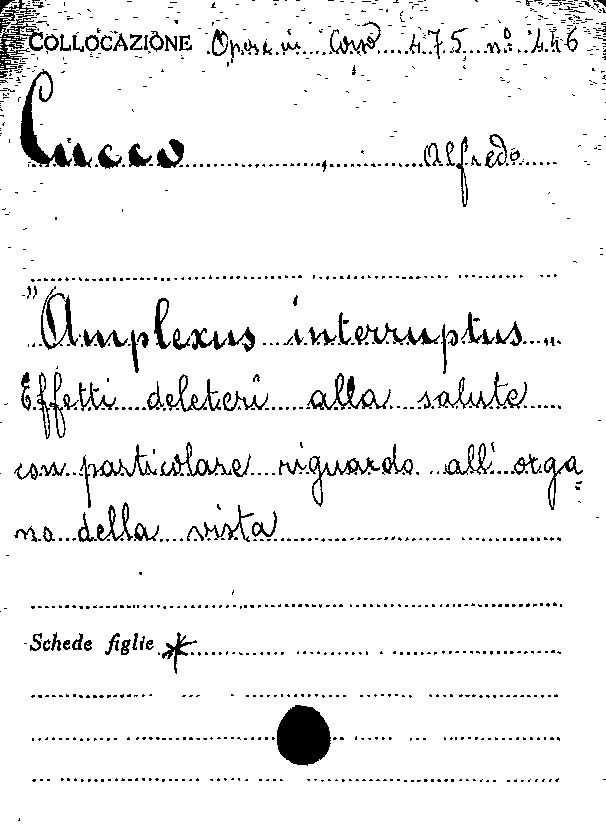 COLLOCAZIONE Opere in Corso 475 n° 446
Cucco, Alfredo
"Amplexus interruptus„
Effetti deleteri alla salute
con particolare riguardo all'orga=
no della vista
Schede figlie *